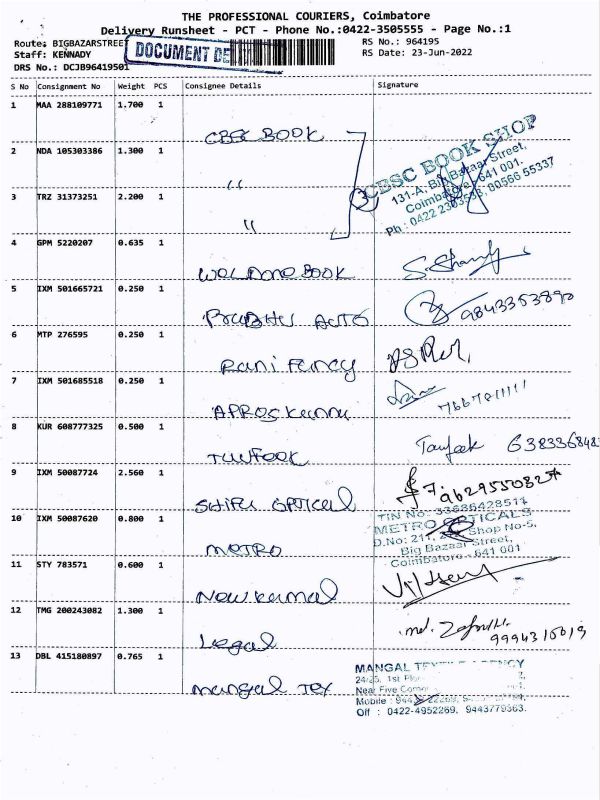 THE PROFESSIONAL COURIERS, Coimbatore
Delivery Runsheet - PCT - Phone No.:0422-3505555 - Page No.:1
Route: BIGBAZARSTREET
RS No.: 964195
Staff: KENNADY
RS Date: 23-Jun-2022
DOCUMENT DE
DRS No.: DCJB96419501
S No Consignment No Weight PCS Consignee Details Signature
1 MAA 288109771 1.700 1
CBSC BOOK
2 NDA 105303386 1.300 1
"
3 TRZ 31373251 2.200 1
"
3
CBSC BOOK SHOP
131-A, Big Bazaar Street,
Coimbatore 641 001.
Ph : 0422
4 GPM 5220207 0.635 1
WELDONE BOOK
5 IXM 501665721 0.250 1
PRABHU AUTO 9843353890
6 MTP 276595 0.250 1
Rani Fency
7 IXM 501685518 0.250 1
8 KUR 608777325 0.500 1
Taufeek
9 IXM 50087724 2.560 1
OPTICAL 9629550827
10 IXM 50087620 0.800 1
METRO
TIN No: 33686428511
METRO OPTICALS
Shop No-5,
Big Bazaar Street,
Coimbatore - 641 001
11 STY 783571 0.600 1
New
12 TMG 200243082 1.300 1
Legal
13 DBL 415180897 0.765 1
Mangal Tex
MANGAL
24/25, 1st
Near Five
Mobile :
Off : 0422-4952269, 9443779363.